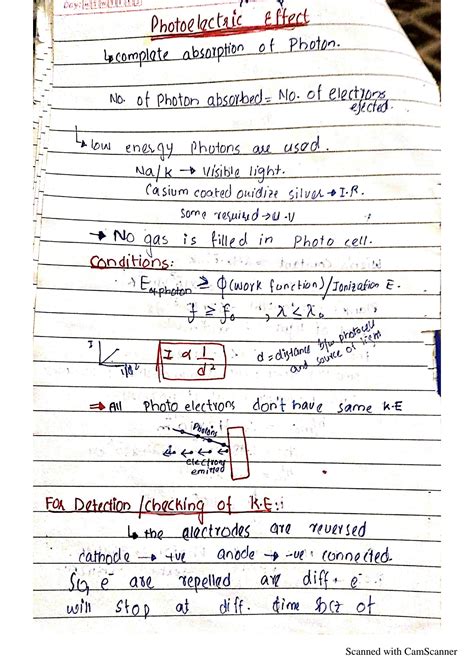 Photoelectric Effect
↳complete absorption of Photon.
No. of Photon absorbed = No. of electrons
ejected.
↳low energy Photons are used.
Na/K → Visible light.
Casium coated ouidize silver → I.R.
Some required → U.V
→ No gas is filled in Photo cell.
Conditions:
E of photon ≥ ϕ(work function)/Ionization E.
f ≥ f₀ , λ < λ₀
I
1/d²
I ∝ 1/d²
d = distance b/w photocell
and source of light
⇒ All Photo electrons don't have same K.E
Photons
electrons
emitted
For Detection/checking of K.E::
↳ the electrodes are reversed
cathode → +ve anode → -ve connected.
So, e⁻ are repelled and diff. e⁻
will stop at diff. time bcz of
Scanned with CamScanner